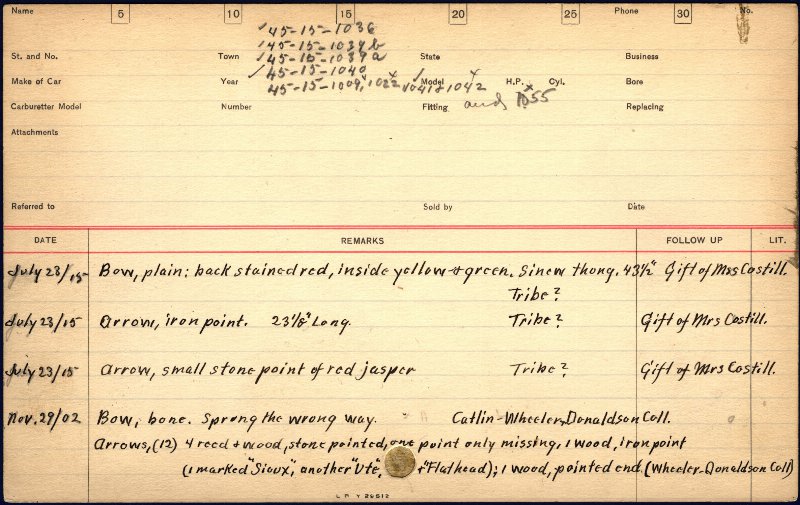 Name 5 10 15 20 25 Phone 30 No.
✓45-15-1036
✓45-15-1039b
St. and No. Town ✓45-15-1039a State Business
✓45-15-1040
Make of Car Year Model H.P. Cyl. Bore
45-15-1009, 1022 1041 + 1042
Carburetter Model Number Fitting and 1055 Replacing
Attachments
Referred to Sold by Date
DATE REMARKS FOLLOW UP LIT.
July 23/15 Bow, plain; back stained red, inside yellow + green. Sinew thong. 43½" Gift of Mrs Costill.
Tribe?
July 23/15 Arrow, iron point. 23⅛" Long. Tribe? Gift of Mrs Costill.
July 23/15 Arrow, small stone point of red jasper Tribe? Gift of Mrs Costill.
Nov. 29/02 Bow, bone. Sprung the wrong way. Catlin-Wheeler, Donaldson Coll.
Arrows, (12) 4 reed + wood, stone pointed, one point only missing, 1 wood, iron point
(1 marked "Sioux", another "Ute", "Flathead); 1 wood, pointed end. (Wheeler-Donaldson Coll)